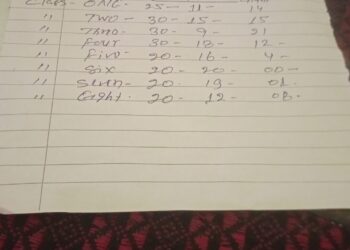 Class- ONE- 25- 11- 14
" Two- 30- 15- 15
" Three- 30- 9- 21
" Four 30- 18- 12-
" Five 20- 16- 4-
" Six 20- 20- 00-
" Seven- 20- 19- 01.
" Eight. 20- 12- 08.